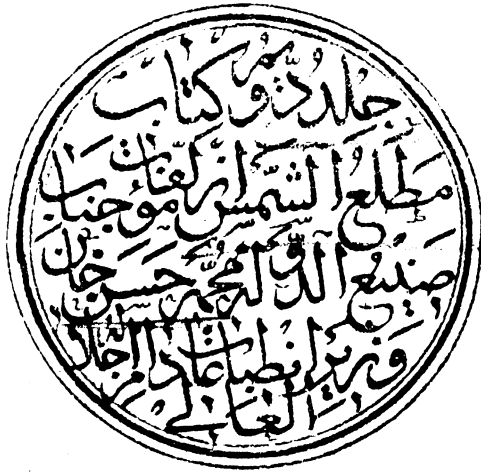 جلد دویم کتاب
مطلع الشمس از مؤلفات جناب
صنیع الدوله محمد حسن خان
وزیر انطباعات دام اجلاله
العالی